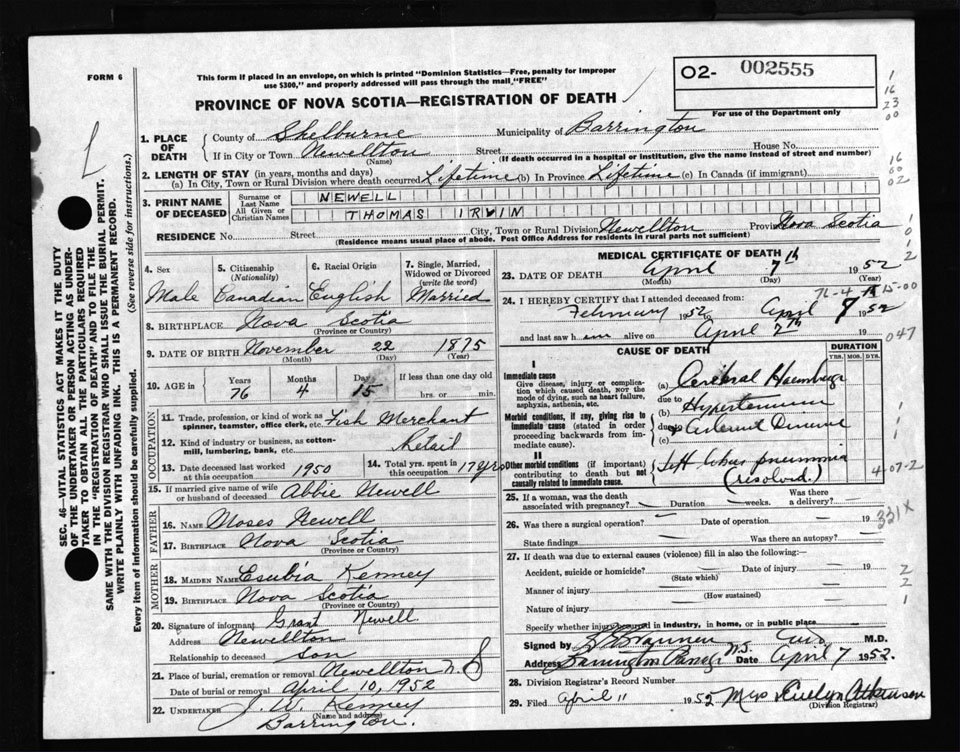 FORM 6
This form if placed in an envelope, on which is printed "Dominion Statistics—Free, penalty for improper
use $300," and properly addressed will pass through the mail "FREE"
02- 002555
For use of the Department only
PROVINCE OF NOVA SCOTIA—REGISTRATION OF DEATH
1
16
23
00
1. PLACE OF DEATH County of Shelburne Municipality of Barrington
If in City or Town Newellton Street House No.
(Name) (If death occurred in a hospital or institution, give the name instead of street and number)
2. LENGTH OF STAY (in years, months and days)
(a) In City, Town or Rural Division where death occurred Lifetime (b) In Province Lifetime (c) In Canada (if immigrant)
16
60
02
3. PRINT NAME OF DECEASED Surname or Last Name NEWELL
All Given or Christian Names THOMAS IRVIN
RESIDENCE No. Street City, Town or Rural Division Newellton Province Nova Scotia
(Residence means usual place of abode. Post Office Address for residents in rural parts not sufficient)
4. Sex Male
5. Citizenship (Nationality) Canadian
6. Racial Origin English
7. Single, Married, Widowed or Divorced (write the word) Married
8. BIRTHPLACE Nova Scotia
(Province or Country)
9. DATE OF BIRTH November 22 1875
(Month) (Day) (Year)
10. AGE in Years Months Days If less than one day old
76 4 15 hrs. or min.
OCCUPATION
11. Trade, profession, or kind of work as
spinner, teamster, office clerk, etc. Fish Merchant
12. Kind of industry or business, as cotton-
mill, lumbering, bank, etc. Retail
13. Date deceased last worked
at this occupation 1950
14. Total yrs. spent in
this occupation 17 yrs
15. If married give name of wife
or husband of deceased Abbie Newell
FATHER
16. NAME Moses Newell
17. BIRTHPLACE Nova Scotia
(Province or Country)
MOTHER
18. MAIDEN NAME Esubia Kenney
19. BIRTHPLACE Nova Scotia
(Province or Country)
20. Signature of informant Grant Newell
Address Newellton
Relationship to deceased Son
21. Place of burial, cremation or removal Newellton N.S
Date of burial or removal April 10, 1952
22. UNDERTAKER J. W. Kenney
(Name and address)
Barrington.
MEDICAL CERTIFICATE OF DEATH
23. DATE OF DEATH April 7th 1952
(Month) (Day) (Year)
76-4-15-00
24. I HEREBY CERTIFY that I attended deceased from:
February 1952 to April 7 1952
and last saw him alive on April 7th 19
047
CAUSE OF DEATH
DURATION
YRS. MOS. DYS.
I
Immediate cause
Give disease, injury or complica-
tion which caused death, NOT the
mode of dying, such as heart failure,
asphyxia, asthenia, etc.
(a) Cerebral
due to
Morbid conditions, if any, giving rise to
immediate cause (stated in order
proceeding backwards from im-
mediate cause).
due to
II
Other morbid conditions (if important)
contributing to death but not
causally related to immediate cause.
Left lobar pneumonia
(resolved)
4-07-2
25. If a woman, was the death
associated with pregnancy? Duration weeks. Was there a delivery?
26. Was there a surgical operation? Date of operation 19
331X
State findings Was there an autopsy?
27. If death was due to external causes (violence) fill in also the following:—
Accident, suicide or homicide? Date of injury 19
(State which)
Manner of injury
(How sustained)
Nature of injury
Specify whether injury occurred in industry, in home, or in public place
Signed by M.D.
Address Barrington Passage N.S. Date April 7 1952.
28. Division Registrar's Record Number
29. Filed April 11 1952 Mrs Evelyn Atkinson
(Division Registrar)
SEC. 46—VITAL STATISTICS ACT MAKES IT THE DUTY
OF THE UNDERTAKER OR PERSON ACTING AS UNDER-
TAKER TO OBTAIN ALL THE PARTICULARS REQUIRED
IN THE "REGISTRATION OF DEATH" AND TO FILE THE
SAME WITH THE DIVISION REGISTRAR WHO SHALL ISSUE THE BURIAL PERMIT.
WRITE PLAINLY WITH UNFADING INK. THIS IS A PERMANENT RECORD.
Every item of information should be carefully supplied. (See reverse side for instructions.)